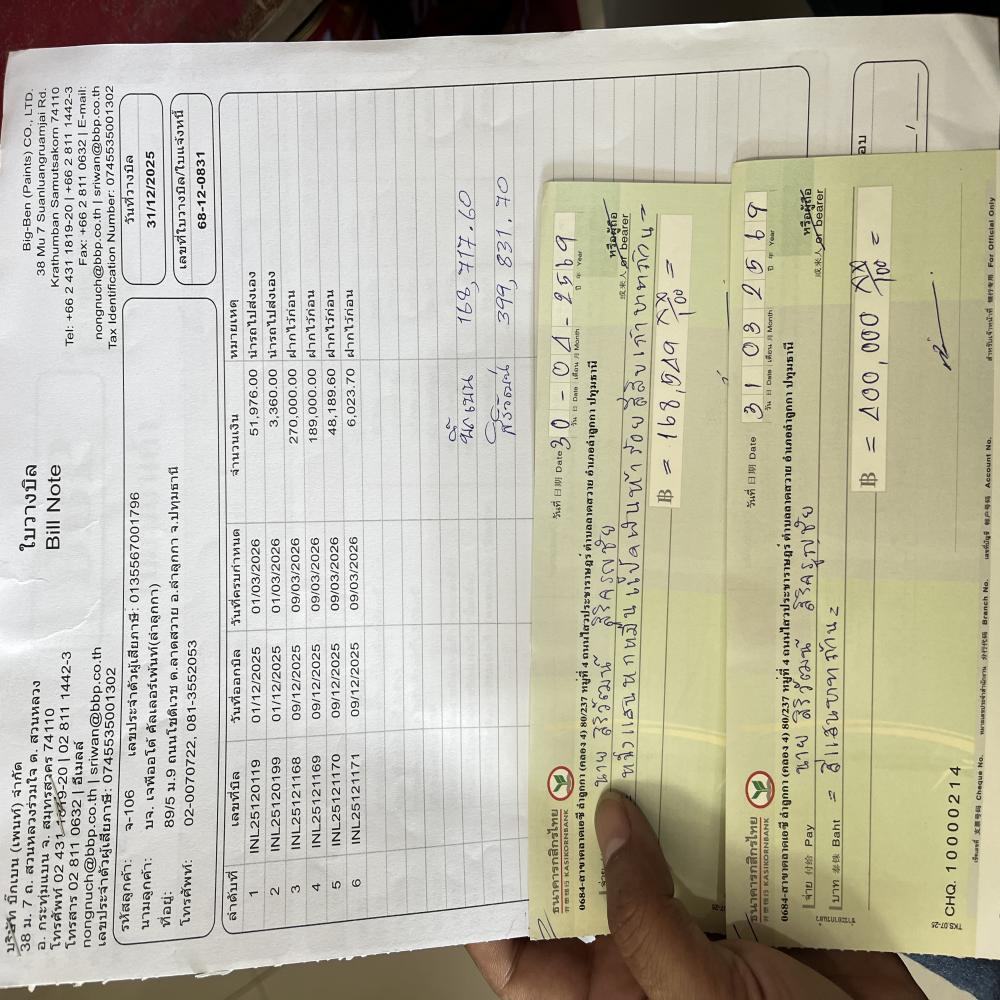 บริษัท บิกเบน (เพนท์) จำกัด
38 ม. 7 ถ. สวนหลวงร่วมใจ ต. สวนหลวง
อ. กระทุ่มแบน จ. สมุทรสาคร 74110
โทรศัพท์ 02 431 1819-20 | 02 811 1442-3
โทรสาร 02 811 0632 | อีเมลล์
nongnuch@bbp.co.th | sriwan@bbp.co.th
เลขประจำตัวผู้เสียภาษี: 0745535001302
ใบวางบิล
Bill Note
Big-Ben (Paints) CO., LTD.
38 Mu 7 Suanluangruamjai Rd.
Krathumban Samutsakorn 74110
Tel: +66 2 431 1819-20 | +66 2 811 1442-3
Fax: +66 2 811 0632 | E-mail:
nongnuch@bbp.co.th | sriwan@bbp.co.th
Tax Identification Number: 0745535001302
รหัสลูกค้า: จ-106 เลขประจำตัวผู้เสียภาษี: 0135567001796
นามลูกค้า: บจ. เจพีออโต้ คัลเลอร์เพ้นท์(ลำลูกกา)
ที่อยู่: 89/5 ม.9 ถนนโชติเวช ต.ลาดสวาย อ.ลำลูกกา จ.ปทุมธานี
โทรศัพท์: 02-0070722, 081-3552053
วันที่วางบิล
31/12/2025
เลขที่ใบวางบิล/ใบแจ้งหนี้
68-12-0831
ลำดับที่ เลขที่บิล วันที่ออกบิล วันที่ครบกำหนด จำนวนเงิน หมายเหตุ
1 INL25120119 01/12/2025 01/03/2026 51,976.00 นำรถไปส่งเอง
2 INL25120199 01/12/2025 01/03/2026 3,360.00 นำรถไปส่งเอง
3 INL25121168 09/12/2025 09/03/2026 270,000.00 ฝากไว้ก่อน
4 INL25121169 09/12/2025 09/03/2026 189,000.00 ฝากไว้ก่อน
5 INL25121170 09/12/2025 09/03/2026 48,189.60 ฝากไว้ก่อน
6 INL25121171 09/12/2025 09/03/2026 6,023.70 ฝากไว้ก่อน
บิ๊กเบน 168,717.60
สิริวัฒน์ 399,831.70
ธนาคารกสิกรไทย
开泰银行 KASIKORNBANK
วันที่ 日期 Date 30-04-2569
วัน 日 Date เดือน 月 Month ปี 年 Year
0684-สาขาตลาดเอซี ลำลูกกา (คลอง 4) 80/237 หมู่ที่ 4 ถนนไสวประชาราษฎร์ ตำบลลาดสวาย อำเภอลำลูกกา ปทุมธานี
นาย สิริวัฒน์ สิริครุฑชัย
หรือผู้ถือ
或来人 or bearer
หนึ่งแสนหกหมื่นแปดพันห้าร้อยสี่สิบเก้าบาทถ้วน =
฿ = 168,549 xx/100 =
ธนาคารกสิกรไทย
开泰银行 KASIKORNBANK
วันที่ 日期 Date 31 03 2569
วัน 日 Date เดือน 月 Month ปี 年 Year
0684-สาขาตลาดเอซี ลำลูกกา (คลอง 4) 80/237 หมู่ที่ 4 ถนนไสวประชาราษฎร์ ตำบลลาดสวาย อำเภอลำลูกกา ปทุมธานี
จ่าย 付给 Pay นาย สิริวัฒน์ สิริครุฑชัย
หรือผู้ถือ
或来人 or bearer
บาท 泰铢 Baht = สี่แสนบาทถ้วน =
฿ = 400,000 xx/100 =
CHQ. 10000214
TKS.07-25
เช็คเลขที่ 支票号码 Cheque No. หมายเลขประจำสำนักงาน 分行代码 Branch No. เลขที่บัญชี 帐户号码 Account No. สำหรับเจ้าหน้าที่ 银行专用 For Official Only